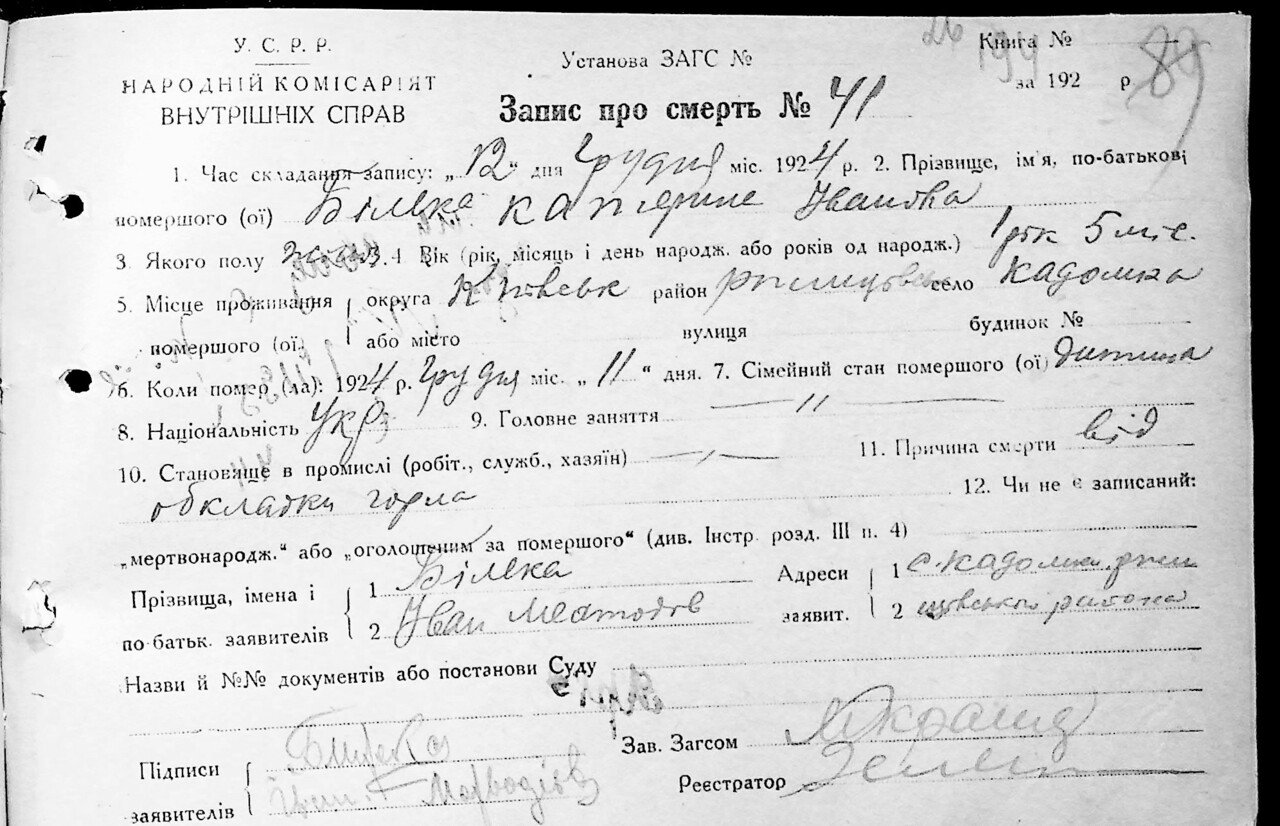 У. С. Р. Р.
НАРОДНІЙ КОМІСАРІЯТ
ВНУТРІШНІХ СПРАВ
Установа ЗАГС №
Книга №
за 192 р. 89
Запис про смерть № 41
1. Час складання запису: „12“ дня Грудня міс. 1924 р. 2. Прізвище, ім'я, по-батькові
помершого (ої) Білека Катерине Іванова
3. Якого полу жін. 4 Вік (рік, місяць і день народж. або років од народж.) 1 рік 5 міс.
5. Місце проживання округа Київськ район село Кадомка
помершого (ої.) або місто вулиця будинок №
6. Коли помер (ла): 1924 р. Грудня міс. „11“ дня. 7. Сімейний стан помершого (ої) дитина
8. Національність Укр 9. Головне заняття — // —
10. Становище в промислі (робіт., служб., хазяїн) 11. Причина смерти від
обкладки горла 12. Чи не є записаний:
„мертвонародж.“ або „оголошеним за помершого“ (див. Інстр. розд. III п. 4)
Прізвища, імена і по-батьк. заявителів
1 Білека
2 Іван Меотодів
Адреси заявит.
1 с. Кадомка
2 района
Назви й №№ документів або постанови Суду
Підписи заявителів
Зав. Загсом
Реєстратор